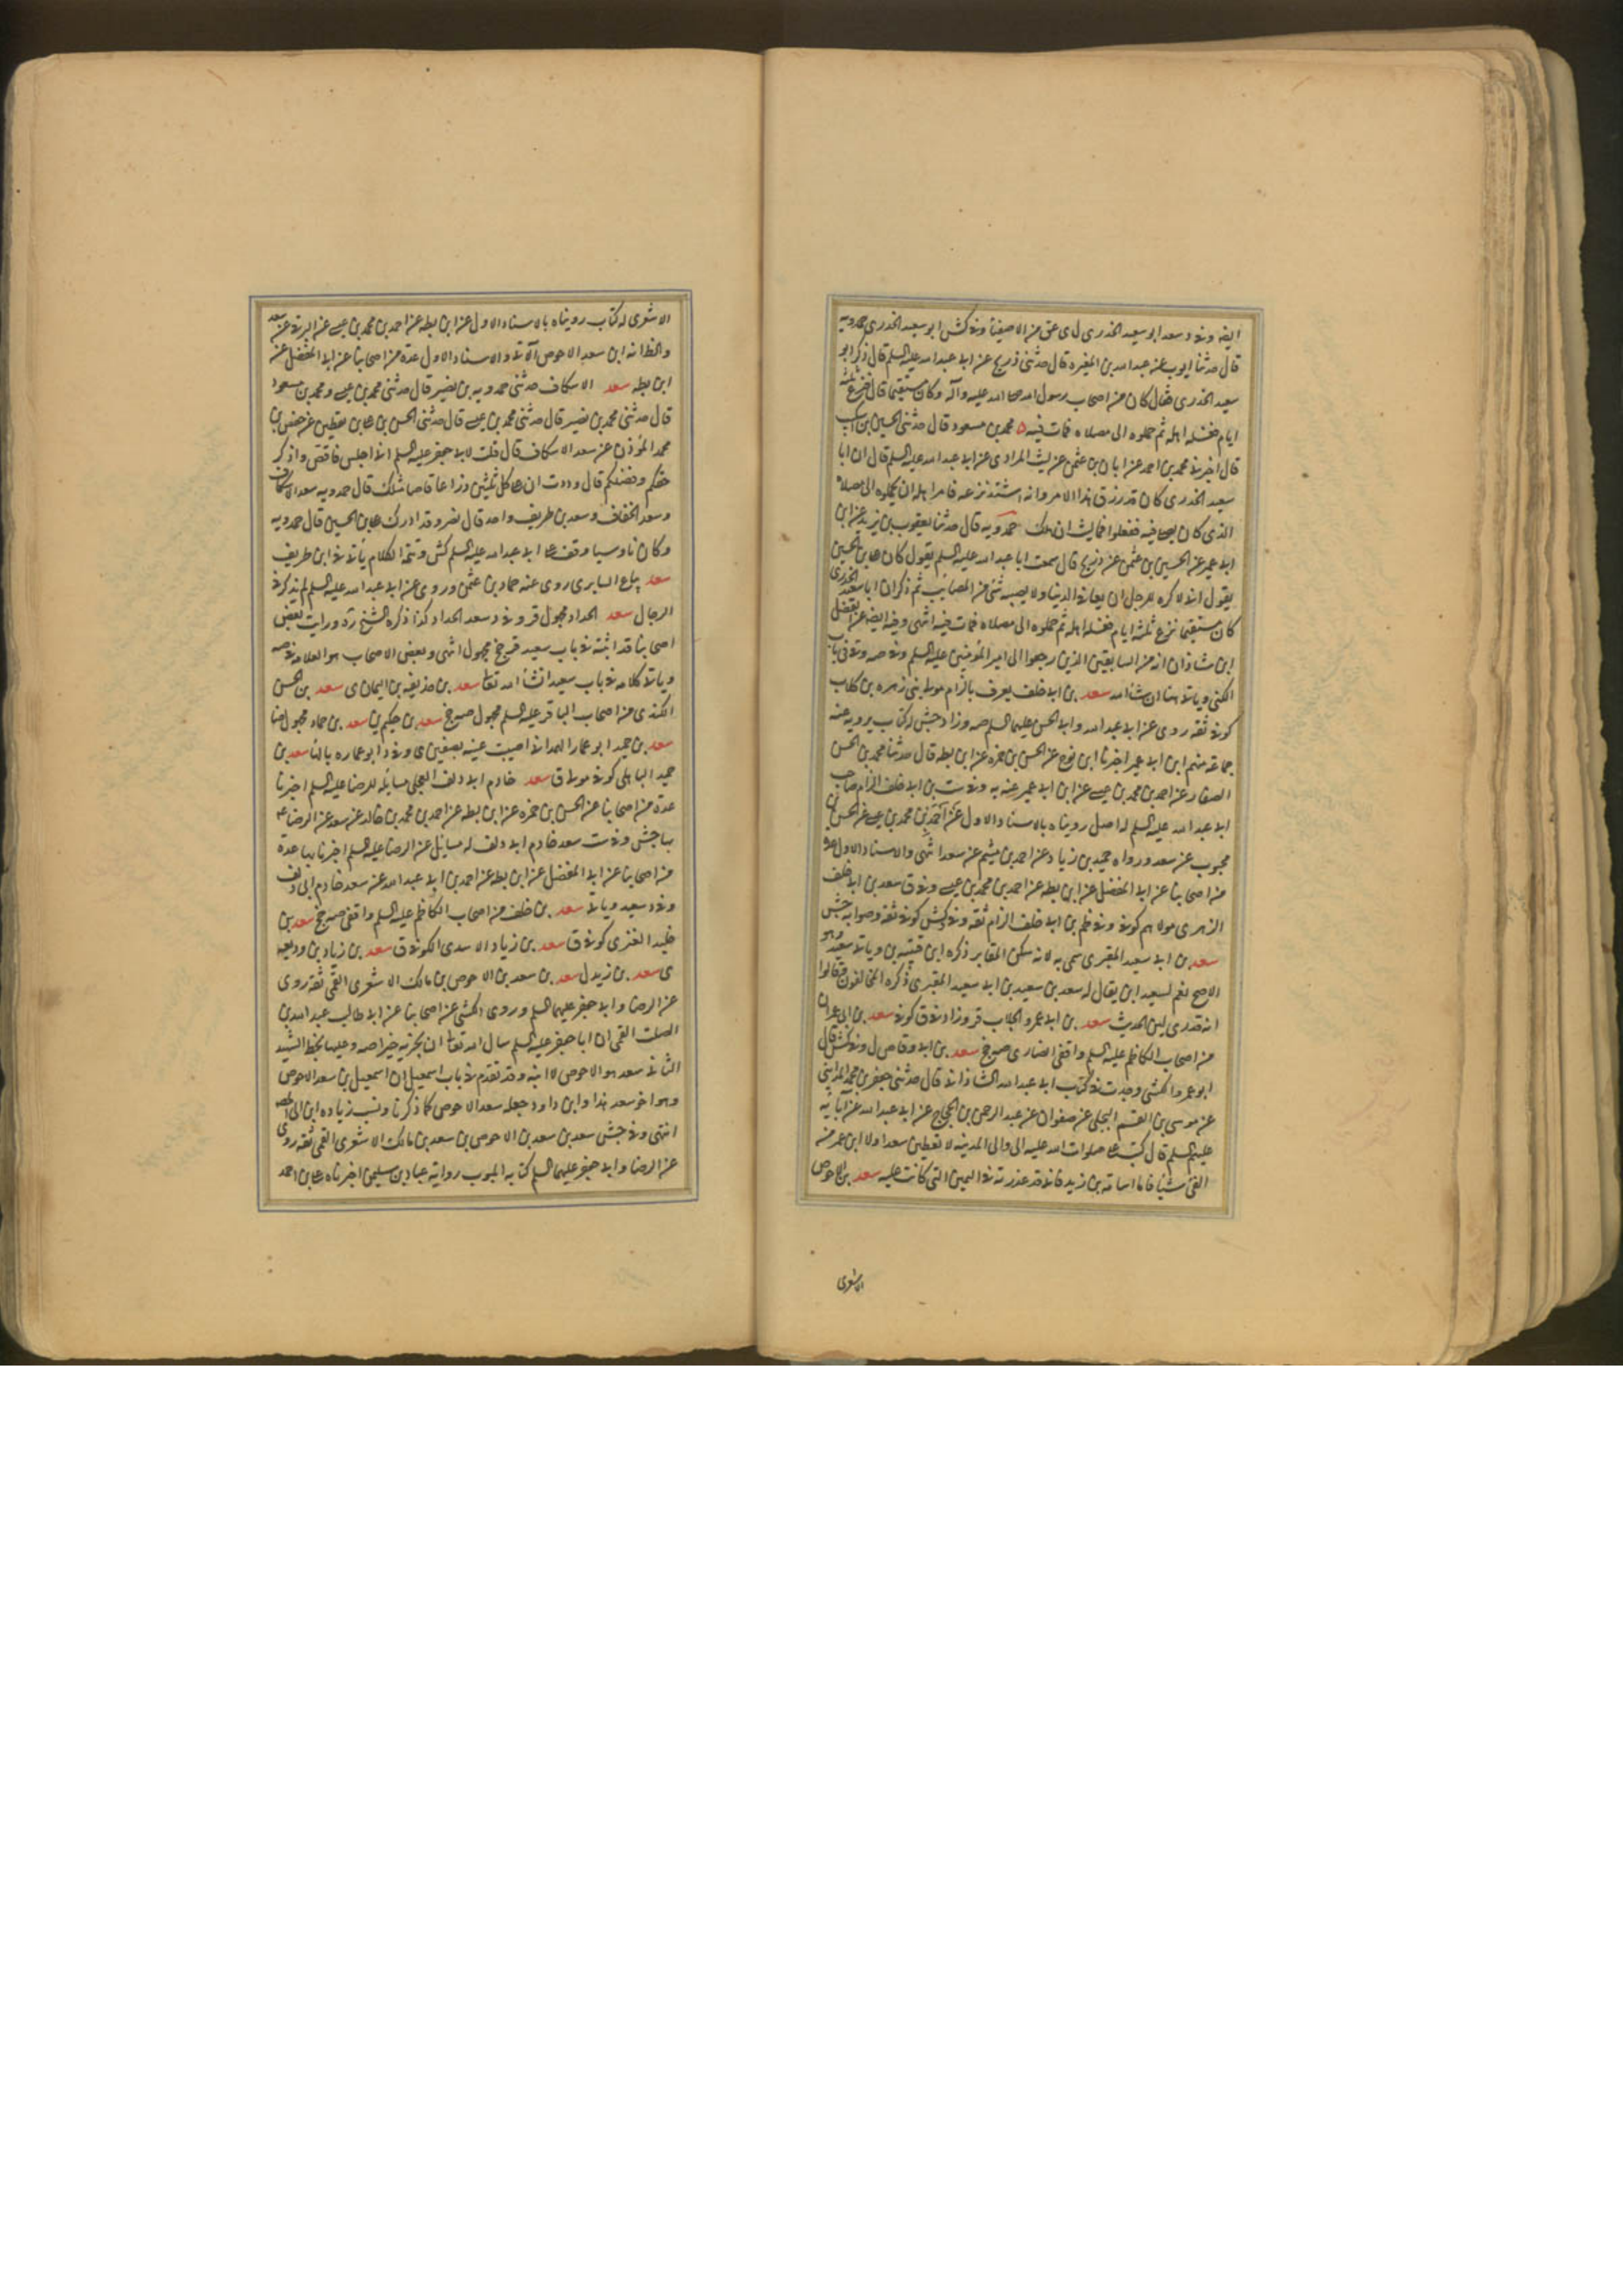 ايضا وفي د سعد ابو سعيد الخدري ل ي عق من الاصفياء وفي كش ابو سعيد الخدري حمدويه
قال حدثنا ايوب عن عبد الله بن المغيره قال حدثني ذريح عن ابي عبد الله عليه السلم قال ذكر ابو
سعيد الخدري فقال كان من اصحاب رسول الله صلى الله عليه وآله وكان مستقيما قال فنزع ثلثة
ايام فغسله اهله ثم حملوه الى مصلاه فمات فيه ٥ محمد بن مسعود قال حدثني الحسين بن اشكيب
قال اخبرنا محمد بن احمد عن ابان بن عثمن عن ليث المرادي عن ابي عبد الله عليه السلم قال ان ابا
سعيد الخدري كان قد رزق هذا الامر وانه اشتد نزعه فامر اهله ان يحملوه الى مصلاه
الذي كان يصلي فيه ففعلوا فما لبث ان هلك حمدويه قال حدثنا يعقوب بن يزيد عن ابن
ابي عمير عن الحسين بن عثمن عن ذريح قال سمعت ابا عبد الله عليه السلم يقول كان علي بن الحسين
يقول اني لاكره للرجل ان يعافى في الدنيا ولا يصيبه شئ من المصائب ثم ذكر ان ابا سعيد الخدري
كان مستقيما نزع ثلثة ايام فغسله اهله ثم حملوه الى مصلاه فمات فيه انتهى وفيه ايضا عن الفضل
ابن شاذان انه من السابقين الذين رجعوا الى امير المؤمنين عليه السلم وفي صه وفي في باب
الكنى ويأتي هنا ان شاء الله سعد بن ابي خلف يعرف بالزام مولى بني زهره بن كلاب
كوفي ثقة روى عن ابي عبد الله وابي الحسن عليهما السلم صه وزاد جش له كتاب يرويه عنه
جماعة منهم ابن ابي عمير اخبرنا ابن نوح عن الحسن بن حمزه عن ابن بطه قال حدثنا محمد بن الحسن
الصفار عن احمد بن محمد بن عيسى عن ابن ابي عمير عنه به وفي ست بن ابي خلف الزام صاحب
ابي عبد الله عليه السلم له اصل رويناه بالاسناد الاول عن احمد بن محمد بن عيسى عن الحسن بن
محبوب عن سعد ورواه حميد بن زياد عن احمد بن ميثم عن سعد انتهى والاسناد الاول عدة
من اصحابنا عن ابي المفضل عن ابن بطه عن احمد بن محمد بن عيسى وفي ق سعد بن ابي خلف
الزهري مولاهم كوفي وفي ظم بن ابي خلف الزام ثقه وفي كش كوفي ثقه وصوابه جش
سعد بن ابي سعيد المقبري سمي به لانه سكن المقابر ذكره ابن قتيبه ين ويأتي سعيد وهو
الاصح نعم لسعيد ابن يقال له سعد بن سعيد بن ابي سعيد المقبري ذكره المخالفون وقالوا
انه قدري لين الحديث سعد بن ابي عمرو الجلاب قر وزاد في ق كوفي سعد بن ابي عمران
من اصحاب الكاظم عليه السلم واقفي انصاري صه جخ سعد بن ابي وقاص ل وفي كش قال
ابو عمرو الكشي وجدت في كتاب ابي عبد الله الشاذاني قال حدثني جعفر بن محمد المدايني
عن موسى بن القسم البجلي عن صفوان عن عبد الرحمن بن الحجاج عن ابي عبد الله عن آبائه
عليهم السلم قال كتب علي صلوات الله عليه الى والى المدينه لا تعطين سعدا ولا ابن عمر من
الفئ شيئا فاما اسامة بن زيد فاني قد عذرته في اليمين التي كانت عليه سعد بن الاحوص
الاشعري
الاشعري له كتاب رويناه بالاسناد الاول عن ابن بطه عن احمد بن محمد بن عيسى عن البرقي عن سعد
والظ انه ابن سعد الاحوص الآتي والاسناد الاول عدة من اصحابنا عن ابي المفضل عن
ابن بطه سعد الاسكاف حدثني حمدويه بن نصير قال حدثني محمد بن عيسى ومحمد بن مسعود
قال حدثني محمد بن نصير قال حدثني محمد بن عيسى قال حدثني الحسن بن علي بن يقطين عن حفص بن
محمد المؤذن عن سعد الاسكاف قال قلت لابي جعفر عليه السلم اني اجلس فاقص واذكر
حقكم وفضلكم قال وددت ان على كل ثلثين ذراعا قاصا مثلك قال حمدويه سعد الاسكاف
وسعد الخفاف وسعد بن طريف واحد قال نصر وقد ادرك علي بن الحسين قال حمدويه
وكان ناوسيا وقف على ابي عبد الله عليه السلم كش وتتمة الكلام يأتي في ابن طريف
سعد بياع السابري روى عنه حماد بن عثمن وروى عن ابي عبد الله عليه السلم لم يذكر في
الرجال سعد الحداد مجهول قر وفي د سعد الحداد كذا ذكره الشيخ رد ورايت بعض
اصحابنا قد اثبته في باب سعيد قر جخ مجهول انتهى وبعض الاصحاب هو العلامه في صه
ويأتي كلامه في باب سعيد انشاء الله تعالى سعد بن حذيفه بن اليمان ي سعد بن الحسن
الكندي من اصحاب الباقر عليه السلم مجهول صه جخ سعد بن حكيم ين سعد بن حماد مجهول ضا
سعد بن حميد ابو عمار الهمداني اصيبت عينه بصفين ي وفي د ابو عماره بالتاء سعد بن
حميد الباهلي كوفي مولى ق سعد خادم ابي دلف العجلي مسائله للرضا عليه السلم اخبرنا
عدة من اصحابنا عن الحسن بن حمزه عن ابن بطه عن احمد بن محمد بن خالد عن سعد عن الرضا ع
بها جش وفي ست سعد خادم ابي دلف له مسايل عن الرضا عليه السلم اخبرنا بها عدة
من اصحابنا عن ابي المفضل عن ابن بطه عن احمد بن ابي عبد الله عن سعد خادم ابي دلف
وفي د سعيد ويأتي سعد بن خلف من اصحاب الكاظم عليه السلم واقفي صه جخ سعد بن
خليد العنزي كوفي ق سعد بن زياد الاسدي الكوفي ق سعد بن زياد بن وديعه
ي سعد بن زيد ل سعد بن سعد بن الاحوص بن مالك الاشعري القمي ثقه روى
عن الرضا وابي جعفر عليهما السلم وروى الكشي عن اصحابنا عن ابي طالب عبد الله بن
الصلت القمي ان ابا جعفر عليه السلم سال الله تعالى ان يجزيه خيرا صه وعليها بخط الشهيد
الثاني سعد هو الاحوص لا ابنه وقد تقدم في باب اسمعيل ان اسمعيل بن سعد الاحوص
وهو اخو سعد هذا وابن داود جعله سعد الاحوص كما ذكرنا ونسب زياده ابن الى صه
انتهى وفي جش سعد بن سعد بن الاحوص بن سعد بن مالك الاشعري القمي ثقه روى
عن الرضا وابي جعفر عليهما السلم كتابه المبوب رواية عباد بن سليمن اخبرناه علي بن احمد